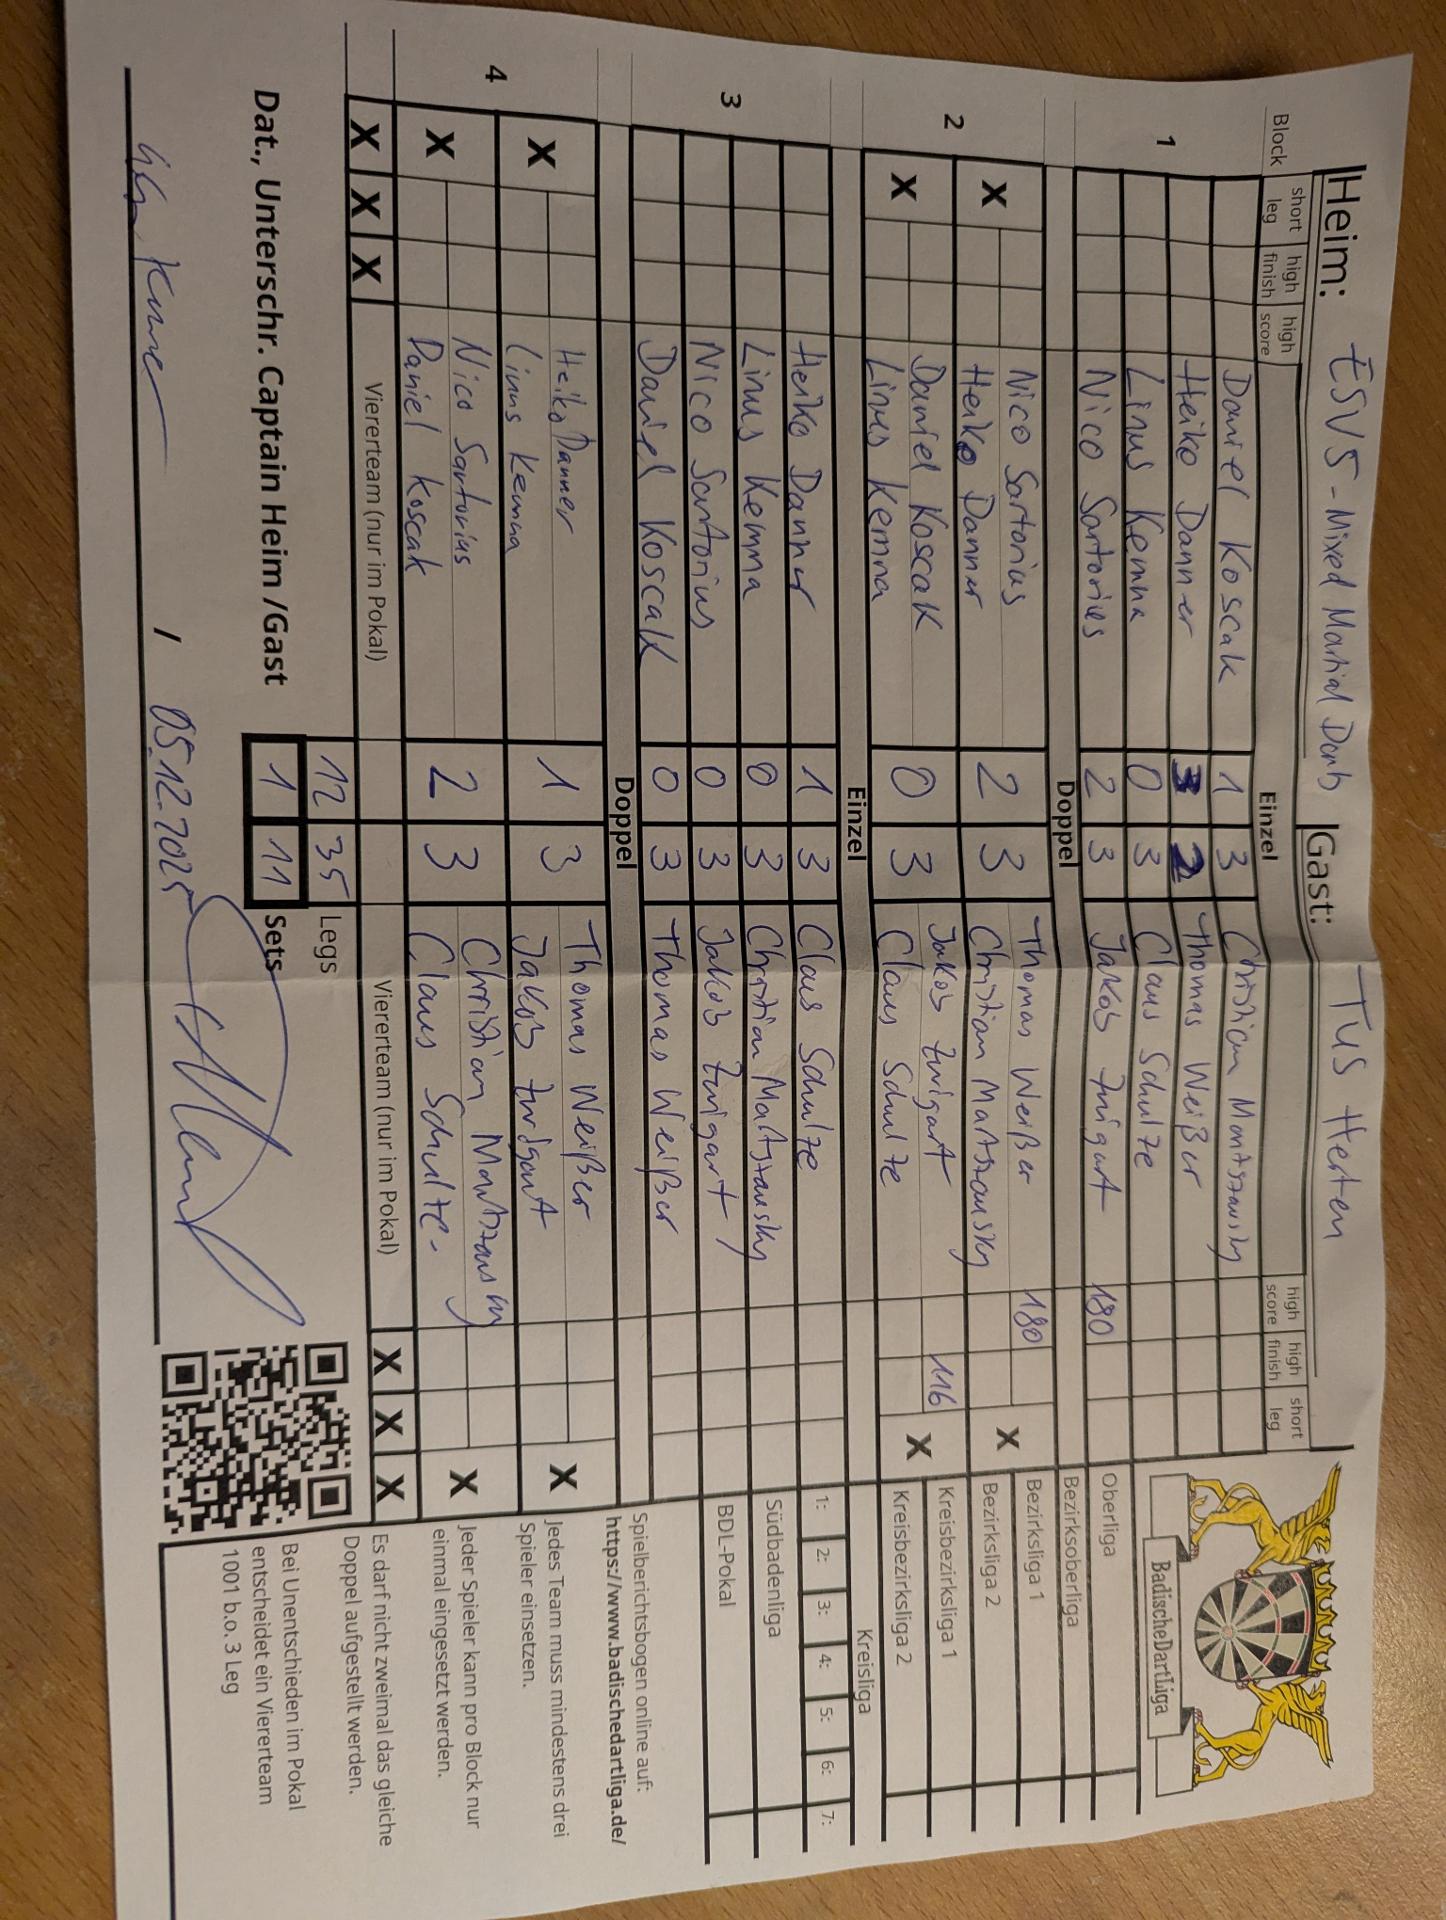 Heim: ESV 5 - Mixed Martial Darts Gast: TuS Herten
Block short leg high finish high score Einzel high score high finish short leg
1 Daniel Koscak 1 3 Christian Martszausky
Heiko Danner 3 2 Thomas Weißer
Linus Kemna 0 3 Claus Schulze
Nico Sartorius 2 3 Jakob Zwigart 180
Doppel
2 X Nico Sartorius 2 3 Thomas Weißer 180 X
Heiko Danner Christian Martszausky
X Daniel Koscak 0 3 Jakob Zwigart 116 X
Linus Kemna Claus Schulze
Einzel
3 Heiko Danner 1 3 Claus Schulze
Linus Kemna 0 3 Christian Martszausky
Nico Sartorius 0 3 Jakob Zwigart
Daniel Koscak 0 3 Thomas Weißer
Doppel
4 X Heiko Danner 1 3 Thomas Weißer X
Linus Kemna Jakob Zwigart
X Nico Sartorius 2 3 Christian Martszausky X
Daniel Koscak Claus Schulze
X X X Viererteam (nur im Pokal) Viererteam (nur im Pokal) X X X
12 35 Legs
Dat., Unterschr. Captain Heim /Gast 1 11 Sets
/ 05.12.2025
BadischeDartLiga
Oberliga
Bezirksoberliga
Bezirksliga 1
Bezirksliga 2
Kreisbezirksliga 1
Kreisbezirksliga 2
Kreisliga
1: 2: 3: 4: 5: 6: 7:
Südbadenliga
BDL-Pokal
Spielberichtsbogen online auf:
https://www.badischedartliga.de/
Jedes Team muss mindestens drei
Spieler einsetzen.
Jeder Spieler kann pro Block nur
einmal eingesetzt werden.
Es darf nicht zweimal das gleiche
Doppel aufgestellt werden.
Bei Unentschieden im Pokal
entscheidet ein Viererteam
1001 b.o. 3 Leg